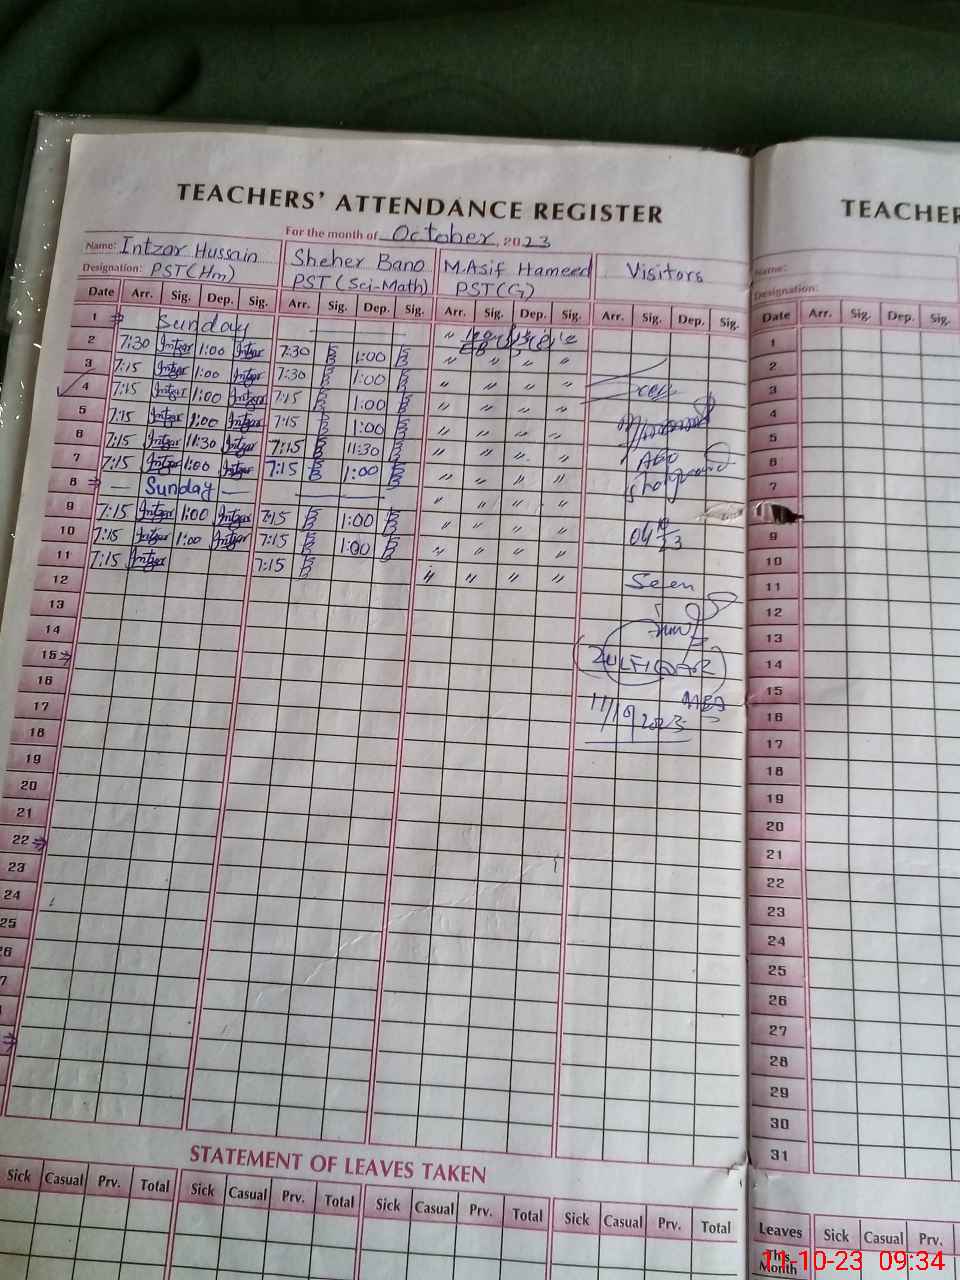 TEACHERS' ATTENDANCE REGISTER
For the month of October, 2023
Name: Intzar Hussain
Designation: PST(Hm)
Sheher Bano
PST (Sci-Math)
M.Asif Hameed
PST(G)
Visitors
Date Arr. Sig. Dep. Sig. Arr. Sig. Dep. Sig. Arr. Sig. Dep. Sig. Arr. Sig. Dep. Sig.
1 Sunday
2 7:30 Intzar 1:00 Intzar 7:30 B 1:00 B " " " "
3 7:15 Intzar 1:00 Intzar 7:30 B 1:00 B " " " "
4 7:15 Intzar 1:00 Intzar 7:15 B 1:00 B " " " "
5 7:15 Intzar 1:00 Intzar 7:15 B 1:00 B " " " "
6 7:15 Intzar 11:30 Intzar 7:15 B 11:30 B " " " "
7 7:15 Intzar 1:00 Intzar 7:15 B 1:00 B " " " "
8 — Sunday — " " " "
9 7:15 Intzar 1:00 Intzar 7:15 B 1:00 B " " " "
10 7:15 Intzar 1:00 Intzar 7:15 B 1:00 B " " " "
11 7:15 Intzar 7:15 B " " " "
12
13
14
15
16
17
18
19
20
21
22
23
24
25
26
7
AEO
Seen
ZULFIQAR
11/10/2023
STATEMENT OF LEAVES TAKEN
Sick Casual Prv. Total Sick Casual Prv. Total Sick Casual Prv. Total Sick Casual Prv. Total
TEACHER
Name:
Designation:
Date Arr. Sig. Dep. Sig.
1
2
3
4
5
6
7
9
10
11
12
13
14
15
16
17
18
19
20
21
22
23
24
25
26
27
28
29
30
31
Leaves Sick Casual Prv.
This Month
11-10-23 09:34